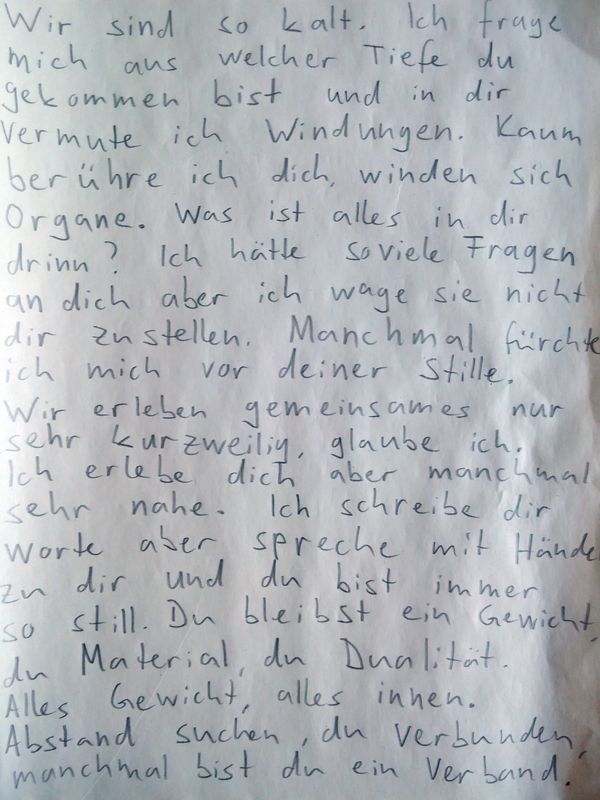 Wir sind so kalt. Ich frage
mich aus welcher Tiefe du
gekommen bist und in dir
vermute ich Windungen. Kaum
berühre ich dich, winden sich
Organe. Was ist alles in dir
drinn? Ich hätte soviele Fragen
an dich aber ich wage sie nicht
dir zu stellen. Manchmal fürchte
ich mich vor deiner Stille.
Wir erleben gemeinsames nur
sehr kurzweilig, glaube ich.
Ich erlebe dich aber manchmal
sehr nahe. Ich schreibe dir
Worte aber spreche mit Hände
zu dir und du bist immer
so still. Du bleibst ein Gewicht,
du Material, du Dualität.
Alles Gewicht, alles innen.
Abstand suchen, du verbunden,
manchmal bist du ein Verband.